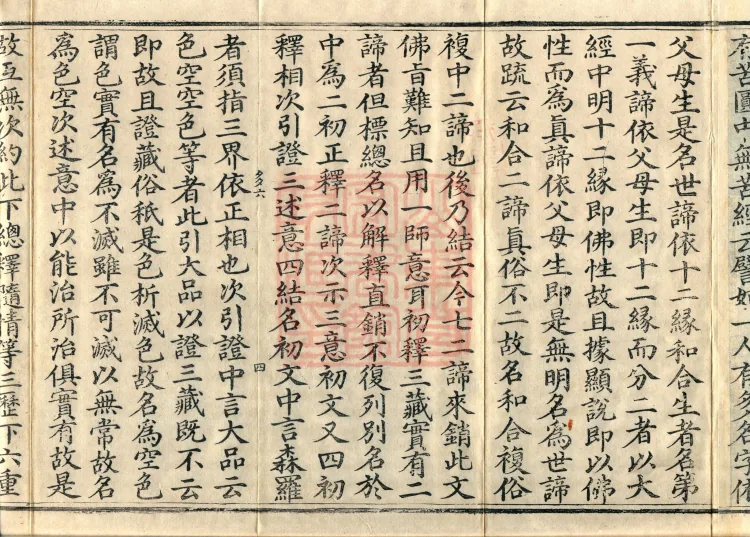 有苦國中無苦經云譬如一人有多名字依
父母生是名世諦依十二緣和合生者名第
一義諦依父母生即十二緣而分二者以大
經中明十二緣即佛性故且據顯說即以佛
性而為眞諦依父母生即是無明名為世諦
故䟽云和合二諦眞俗不二故名和合複俗
複中二諦也後乃結云今七二諦來銷此文
佛旨難知且用一師意耳初釋三藏實有二
諦者但標總名以解釋直銷不復列別名於
中為二初正釋二諦次示三意初文又四初
釋相次引證三述意四結名初文中言森羅
者須指三界依正相也次引證中言大品云
色空空色等者此引大品以證三藏既不云
即故且證藏俗秖是色析滅色故名為空色
謂色實有名為不滅雖不可滅以無常故名
為色空次述意中以能治所治俱實有故是
故互無次約此下總釋隨情等三歷下六重
多六
四